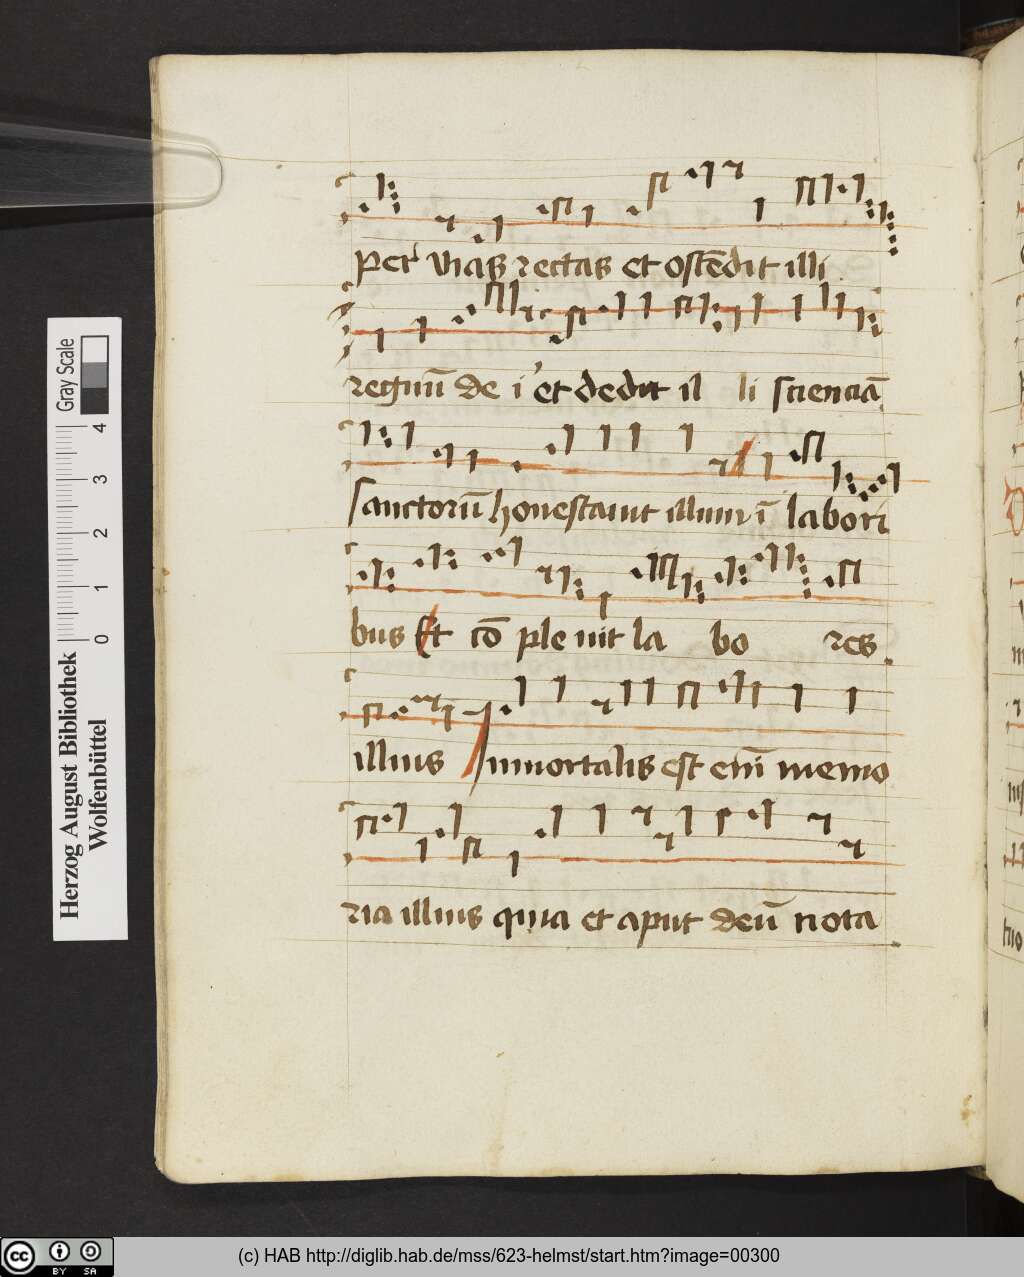 per vias rectas et ostēdit illi
regnū de i et dedit il li sciencıā
sanctorū honestauit illum ī labori
bus Et cō ple uit la bo res
illius Inmortalis est enī memo
ria illius qm̄a et aput deū nota
Herzog August Bibliothek
Wolfenbüttel
Gray Scale
0 1 2 3 4
cc BY SA
(c) HAB http://diglib.hab.de/mss/623-helmst/start.htm?image=00300